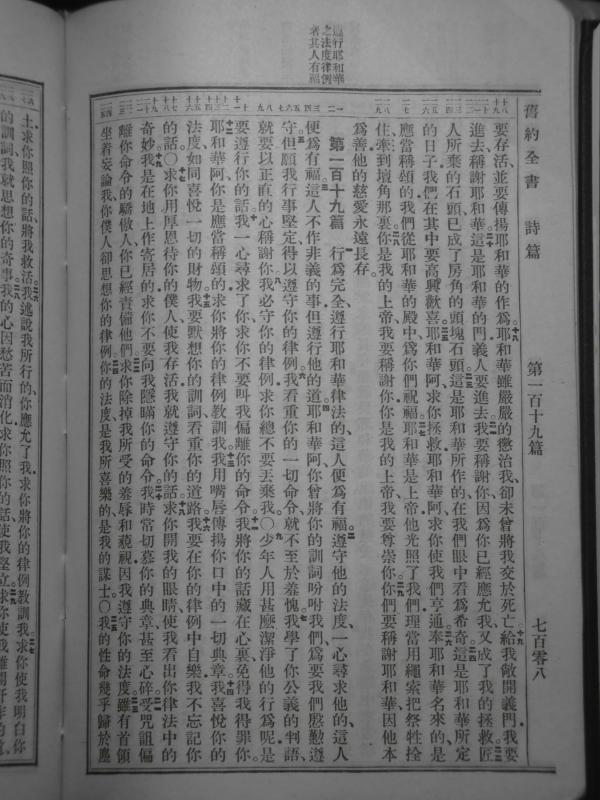 舊約全書 詩篇 第一百十九篇 七百零八
要存活並要傳揚耶和華的作爲耶和華雖嚴嚴的懲治我卻未曾將我交於死亡給我敞開義門我要
進去稱謝耶和華這是耶和華的門義人要進去我要稱謝你因爲你已經應允我又成了我的拯救匠
人所棄的石頭已成了房角的頭塊石頭這是耶和華所作的在我們眼中看爲希奇這是耶和華所定
的日子我們在其中要高興歡喜耶和華阿求你拯救耶和華阿求你使我們亨通奉耶和華名來的是
應當稱頌的我們從耶和華的殿中爲你們祝福耶和華是上帝他光照了我們理當用繩索把祭牲拴
住牽到壇角那裏你是我的上帝我要稱謝你你是我的上帝我要尊崇你你們要稱謝耶和華因他本
爲善他的慈愛永遠長存
第一百十九篇 行爲完全遵行耶和華律法的這人便爲有福遵守他的法度一心尋求他的這人
便爲有福這人不作非義的事但遵行他的道耶和華阿你曾將你的訓詞吩咐我們爲要我們慇懃遵
守但願我行事堅定得以遵守你的律例我看重你的一切命令就不至於羞愧我學了你公義的判語
就要以正直的心稱謝你我必守你的律例求你總不要丟棄我〇少年人用甚麼潔淨他的行爲呢是
要遵行你的話我一心尋求了你求你不要叫我偏離你的命令我將你的話藏在心裏免得我得罪你
耶和華阿你是應當稱頌的求你將你的律例教訓我我用嘴唇傳揚你口中的一切典章我喜悅你的
法度如同喜悅一切的財物我要默想你的訓詞看重你的道路我要在你的律例中自樂我不忘記你
的話〇求你用厚恩待你的僕人使我存活我就遵守你的話求你開我的眼睛使我看出你律法中的
奇妙我是在地上作寄居的求你不要向我隱瞞你的命令我時常切慕你的典章甚至心碎受咒詛偏
離你命令的驕傲人你已經責備他們求你除掉我所受的羞辱和藐視因我遵守你的法度雖有首領
坐着妄論我你僕人卻思想你的律例你的法度是我所喜樂的是我的謀士〇我的性命幾乎歸於塵
遵行耶和華
之法度律例
者其人有福
土求你照你的話將我救活我述說我所行的你應允了我求你將你的律例教訓我求你使我明白你
的訓詞我就思想你的奇事我的心因愁苦而消化求你照你的話使我堅立求你使我離開奸詐的道